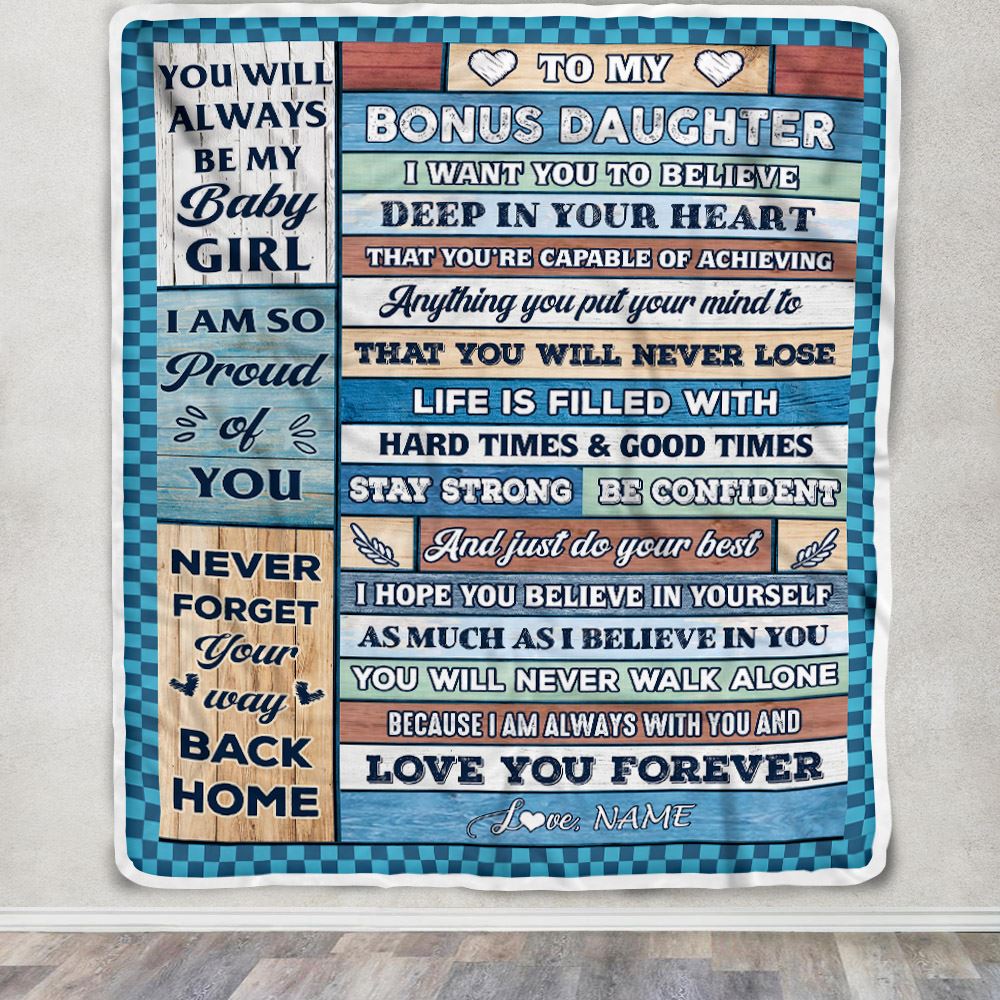 YOU WILL
ALWAYS
BE MY
Baby
GIRL
I AM SO
Proud
of
YOU
NEVER
FORGET
Your
way
BACK
HOME
TO MY
BONUS DAUGHTER
I WANT YOU TO BELIEVE
DEEP IN YOUR HEART
THAT YOU'RE CAPABLE OF ACHIEVING
Anything you put your mind to
THAT YOU WILL NEVER LOSE
LIFE IS FILLED WITH
HARD TIMES & GOOD TIMES
STAY STRONG BE CONFIDENT
And just do your best
I HOPE YOU BELIEVE IN YOURSELF
AS MUCH AS I BELIEVE IN YOU
YOU WILL NEVER WALK ALONE
BECAUSE I AM ALWAYS WITH YOU AND
LOVE YOU FOREVER
Love, NAME